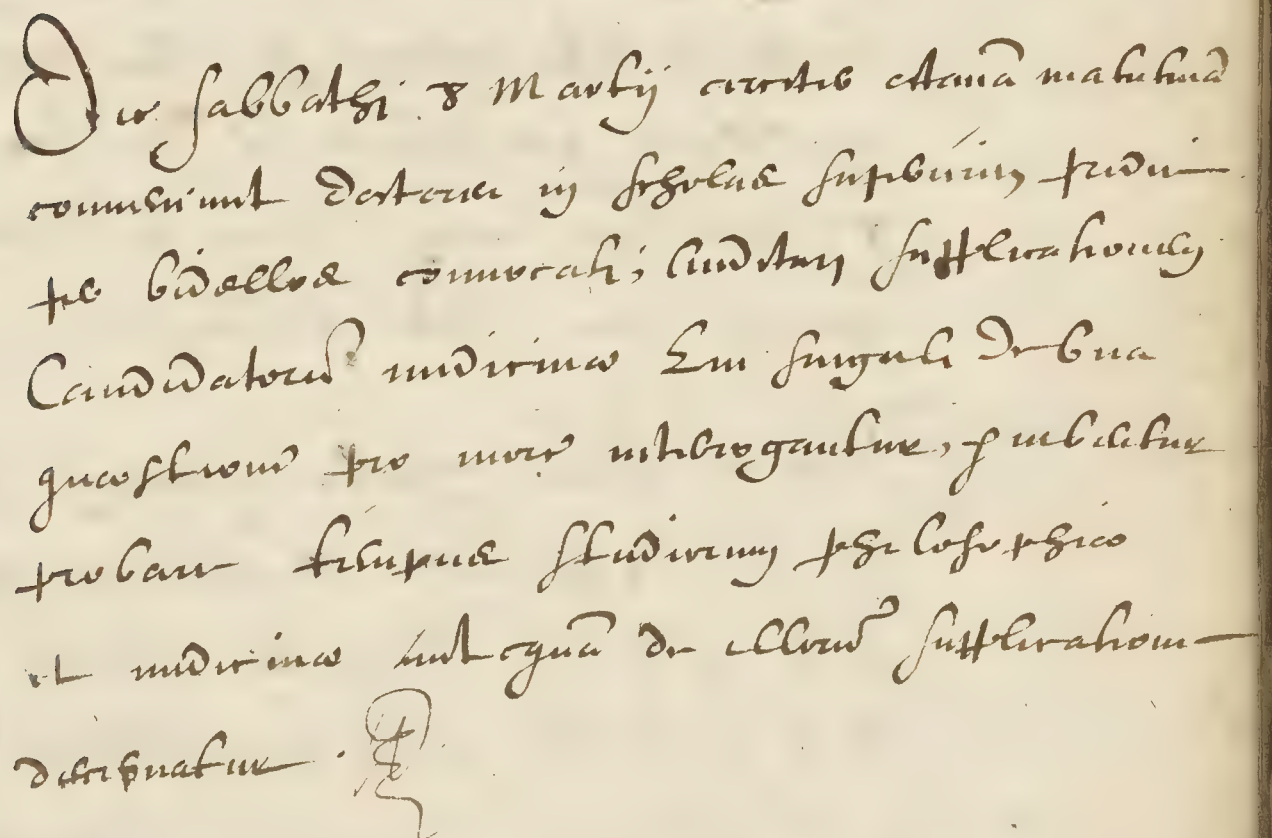 Die sabbathi 8 Martij circiter octauā matutinā
conueniunt doctores in scholas superiores pridie
per bidellos conuocati, audituri supplicationes
Candidatorū medicinæ Qui singuli de una
quæstione pro more interrogantur, iubentur
probare tempus studiorum philosophiæ
et medicinæ antequā de illorū supplicatione
decernatur.